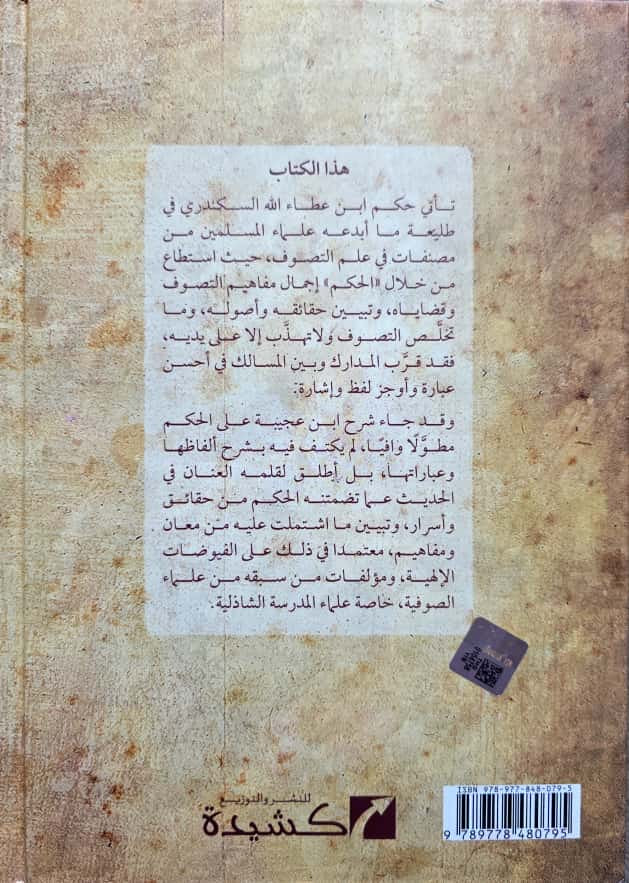 هذا الكتاب
تأتي حكم ابن عطاء الله السكندري في
طليعة ما أبدعه علماء المسلمين من
مصنفات في علم التصوف، حيث استطاع
من خلال «الحكم» إجمال مفاهيم التصوف
وقضاياه، وتبيين حقائقه وأصوله، وما
تخلَّص التصوف ولا تهذَّب إلا على يديه،
فقد قرَّب المدارك وبين المسالك في أحسن
عبارة وأوجز لفظ وإشارة:
وقد جاء شرح ابن عجيبة على الحكم
مطوَّلًا وافيًا، لم يكتف فيه بشرح ألفاظها
وعباراتها، بل أطلق لقلمه العنان في
الحديث عما تضمنته الحكم من حقائق
وأسرار، وتبيين ما اشتملت عليه من معان
ومفاهيم، معتمدا في ذلك على الفيوضات
الإلهية، ومؤلفات من سبقه من علماء
الصوفية، خاصة علماء المدرسة الشاذلية.
للنشر والتوزيع
كشيدة
ISBN 978-977-848-079-5
9 789778 480795